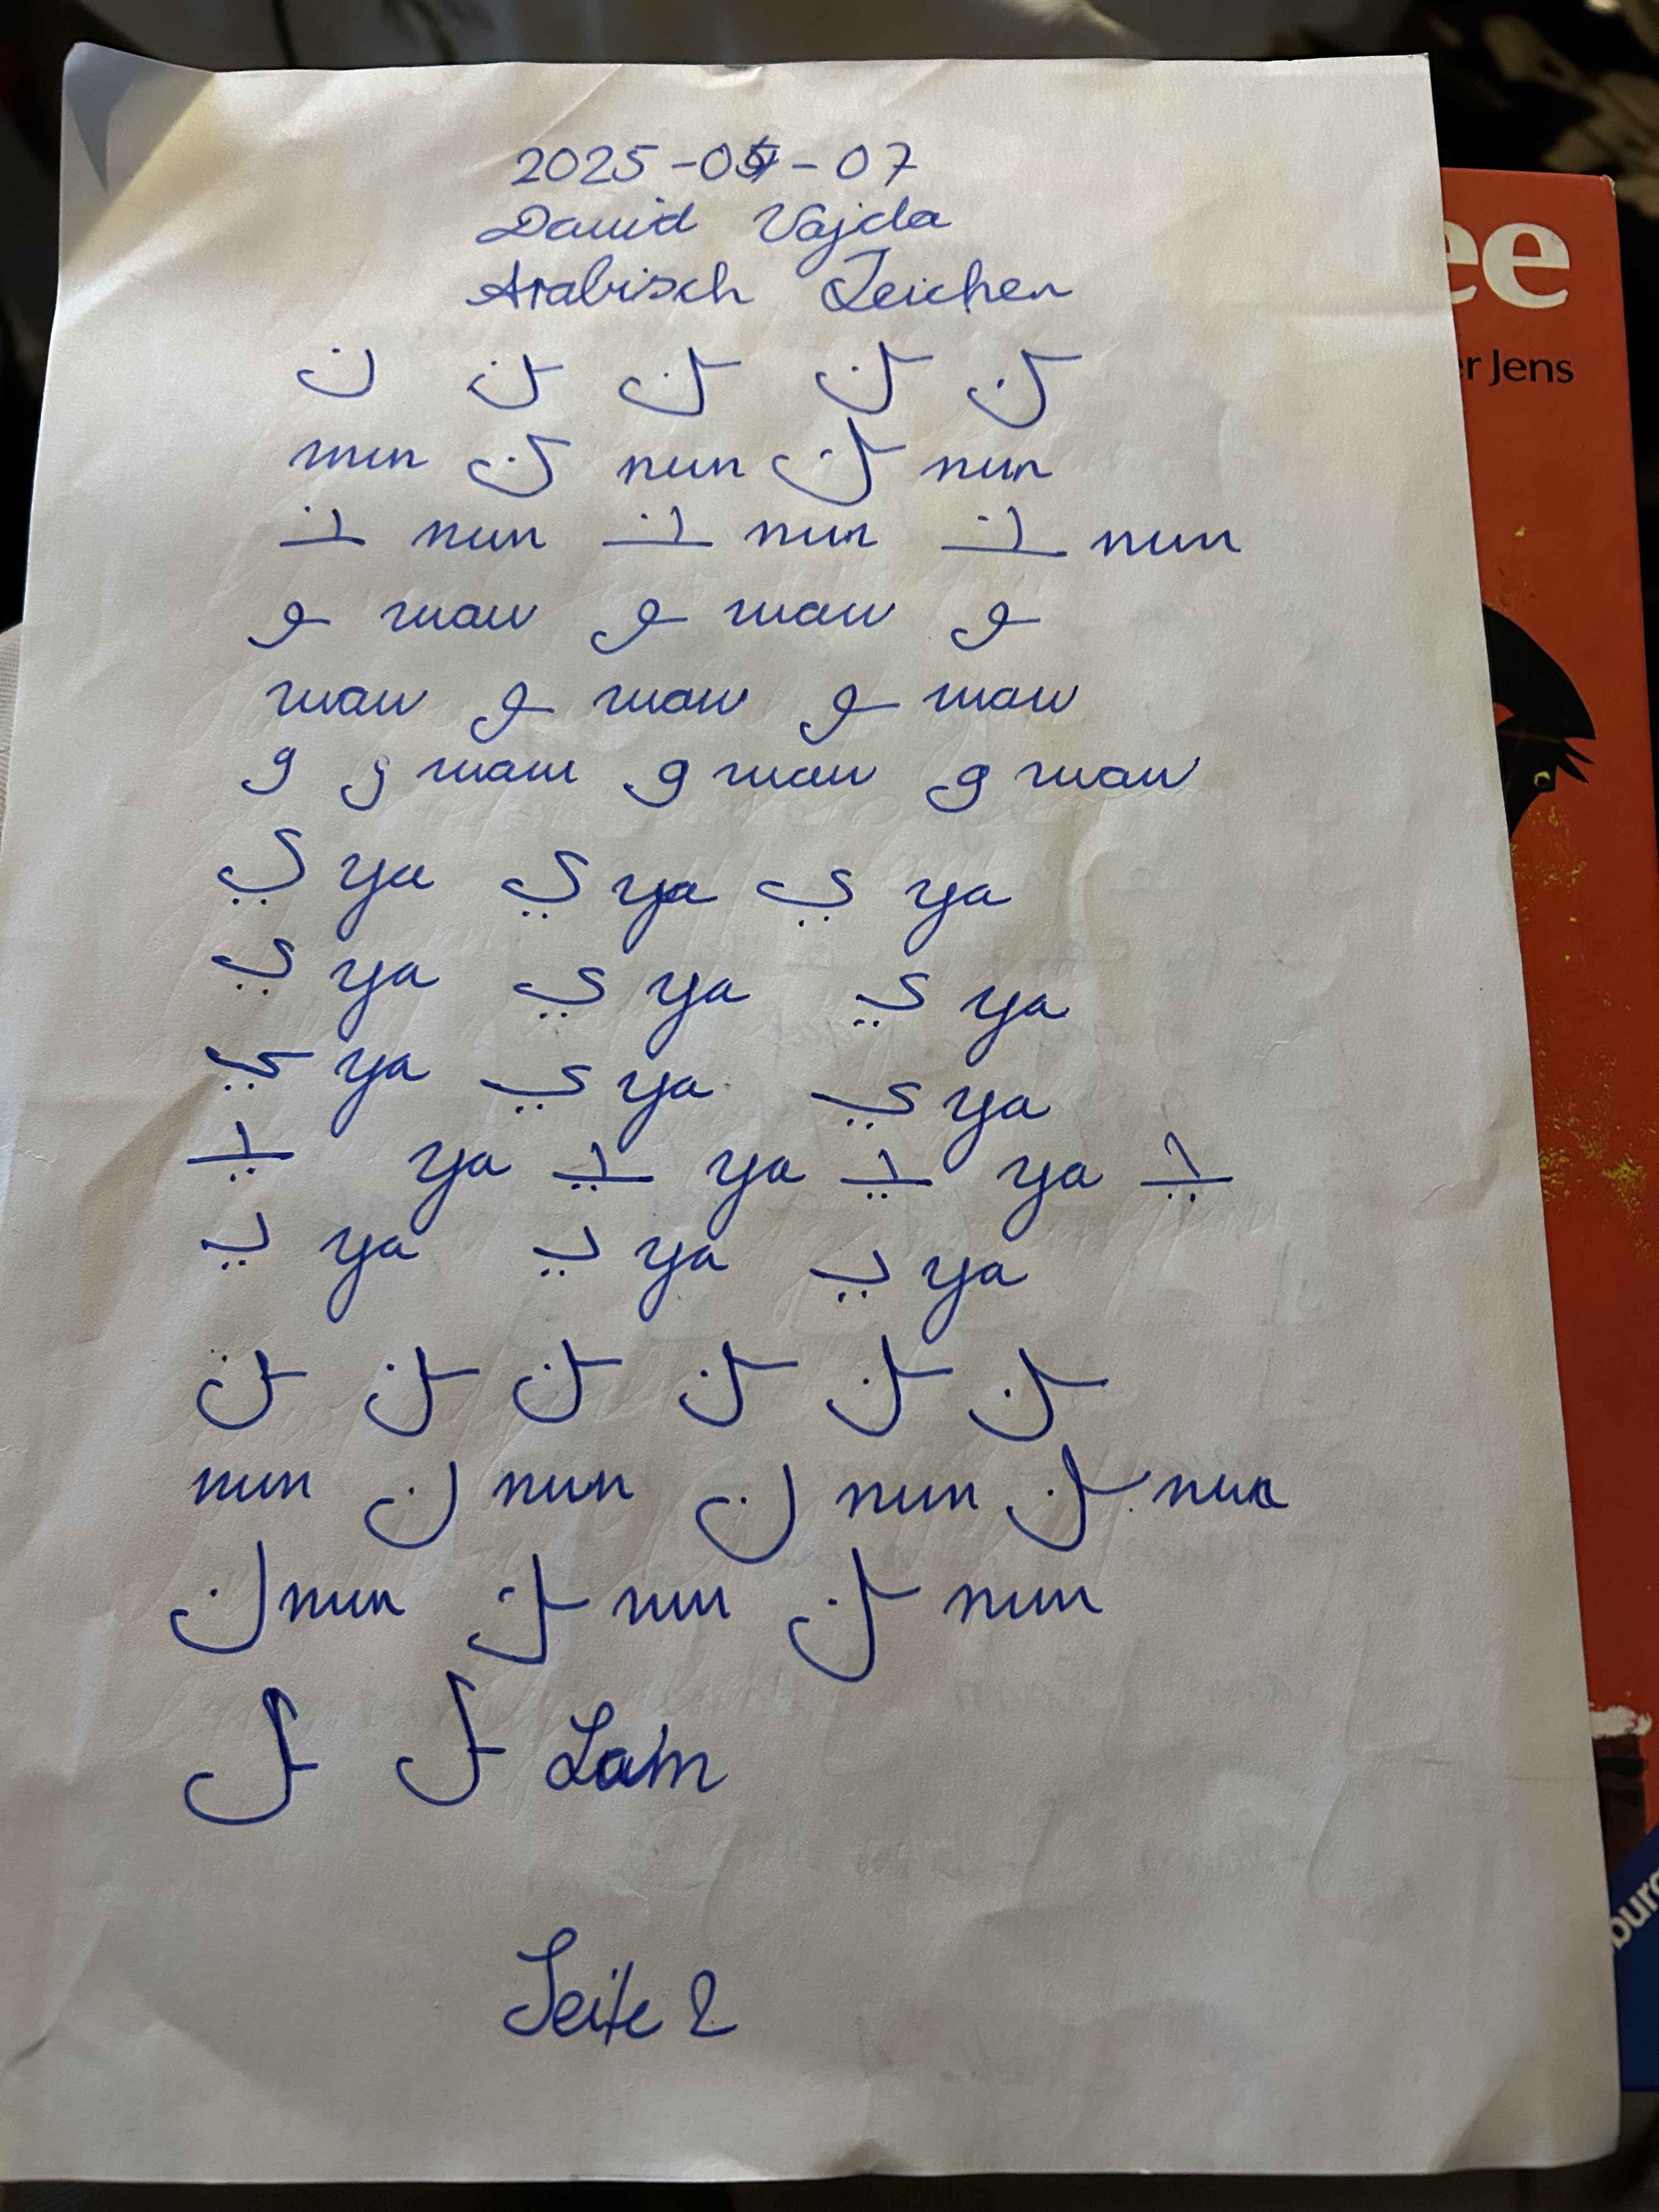 2025-05-07
David Vajda
Arabisch Zeichen
ن ـن ـن ـن ـن
nun ـن nun ـن nun
ـنـ nun ـنـ nun ـنـ nun
ـو waw ـو waw ـو
waw ـو waw ـو waw
و و waw و waw و waw
ي ya ي ya ي ya
ي ya ي ya ي ya
ـي ya ي ya ي ya
ـيـ ya ـيـ ya ـيـ ya ـيـ
يـ ya يـ ya يـ ya
ـن ـن ـن ـن ـن ـن
nun ن nun ن nun ـن nun
ن nun ـن nun ـن nun
ـل ـل Lam
Seite 2
ee
er Jens
burg